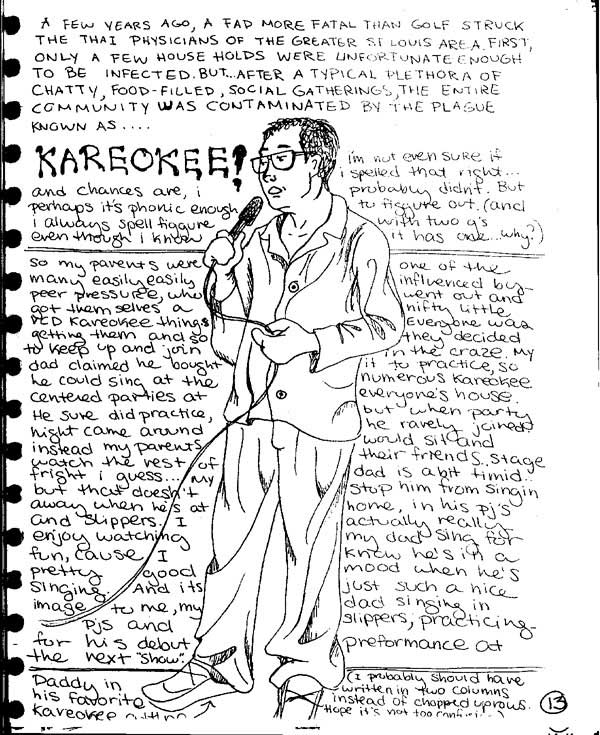 A FEW YEARS AGO, A FAD MORE FATAL THAN GOLF STRUCK
THE THAI PHYSICIANS OF THE GREATER St LOUIS AREA. FIRST,
ONLY A FEW HOUSE HOLDS WERE UNFORTUNATE ENOUGH
TO BE INFECTED. BUT...AFTER A TYPICAL PLETHORA OF
CHATTY, FOOD-FILLED, SOCIAL GATHERINGS, THE ENTIRE
COMMUNITY WAS CONTAMINATED BY THE PLAGUE
KNOWN AS....
KAREOKEE! i'm not even sure if
i spelled that right...
and chances are, i probably didn't. But
perhaps it's phonic enough to figgure out. (and
i always spell figgure with two g's
even though i know it has one...why?)
So my parents were one of the
many easily easily influenced by
peer pressure, who went out and
got themselves a nifty little
Kareokee things Everyone was
getting them and so they decided
to keep up and join in the craze. My
dad claimed he bought it to practice, so
he could sing at the numerous Kareokee
centered parties at everyone's house.
He sure did practice, but when party
night came around he rarely joined
instead my parents would sit and
watch the rest of their friends..stage
fright i guess... my dad is a bit timid..
but that doesn't stop him from singin
away when he's at home, in his pj's
and slippers. I actually really
enjoy watching my dad sing for
fun, cause I know he's in a
pretty good mood when he's
singing. And its just such a nice
image to me, my dad singing in
pjs and slippers, practicing
for his debut preformance at
the next "show".
Daddy in
his favorite
Kareokee
(I probably should have
written in two columns
instead of chopped up rows.
Hope it's not too
13